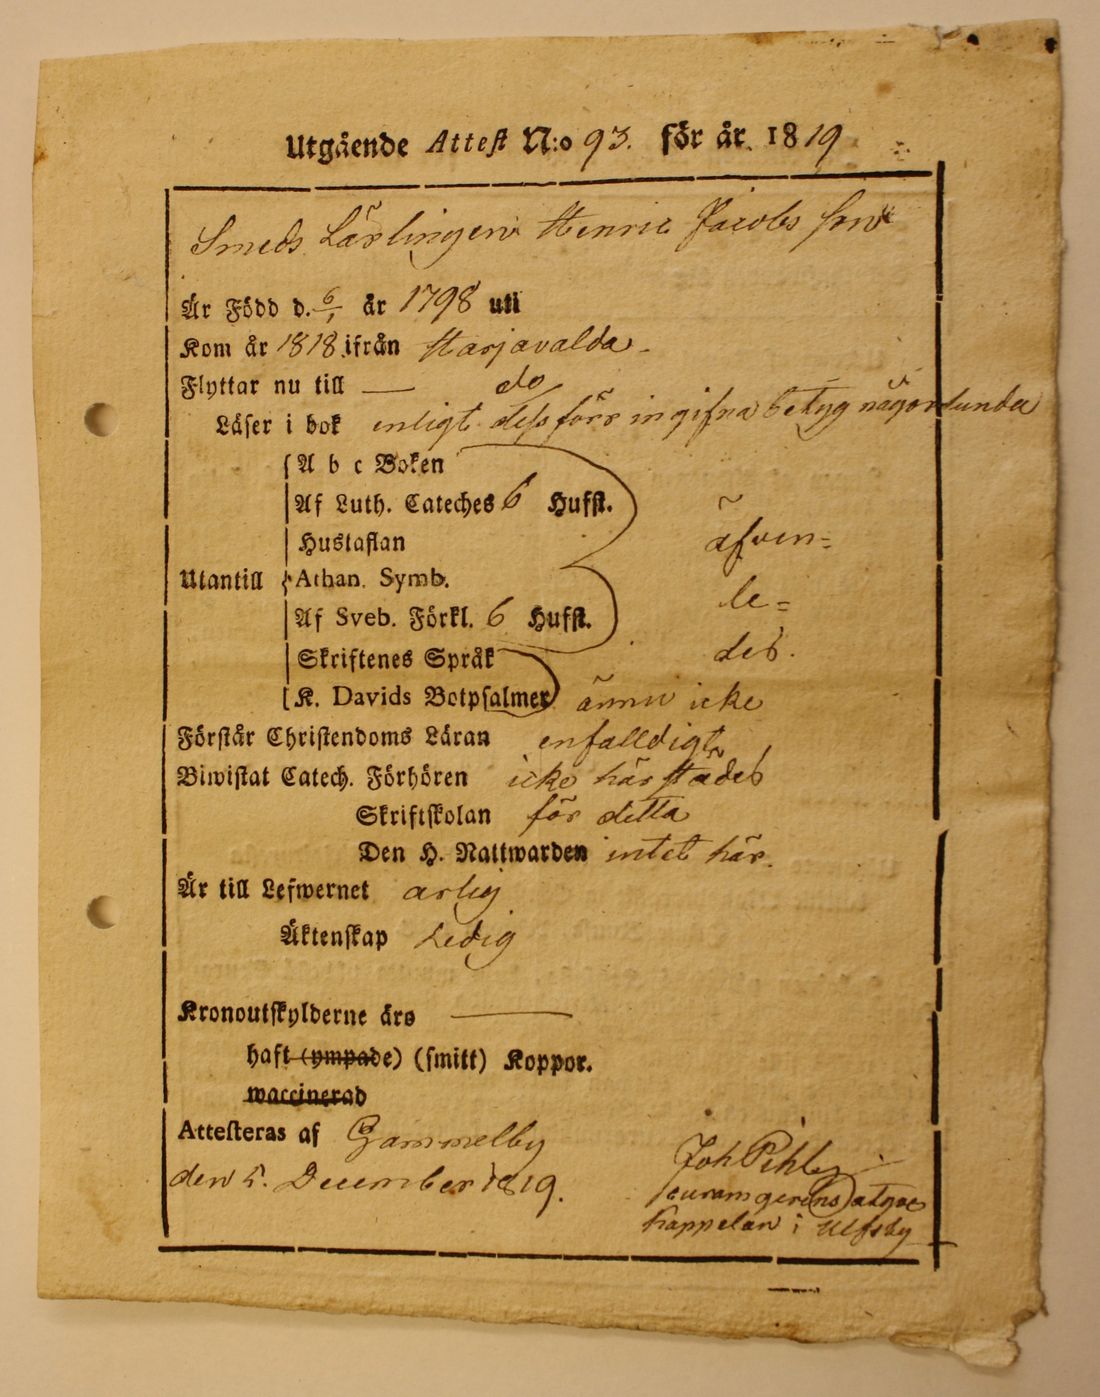 Utgående Attest N:o 93. för år 1819
Smeds Lärlingen Henric Jacobs son
Är Född d. 6/1 år 1798 uti
Kom år 1818 ifrån Harjavalda
Flyttar nu till — do
Läser i bok enligt dess förr ingifna betyg någorlunda
A b c Boken
Af Luth. Cateches 6 Hufst.
Hustaflan äfven=
Utantill Athan. Symb.
le=
Af Sveb. Förkl. 6 Hufst.
Skriftenes Språk des.
K. Davids Botpsalmer ännu icke
Förstår Christendoms Läran enfalldigt
Biwistat Catech. Förhören icke härstädes
Skriftskolan för detta
Den H. Nattwarden intet här.
Är till Lefwernet arlig
Äktenskap Ledig
Kronoutskylderne äro —
haft (ympade) (smitt) Koppor.
waccinerad
Attesteras af Gammelby
den 5. December 1819.
Joh Pihl
curam gerens
Kappelan i Ulfsby